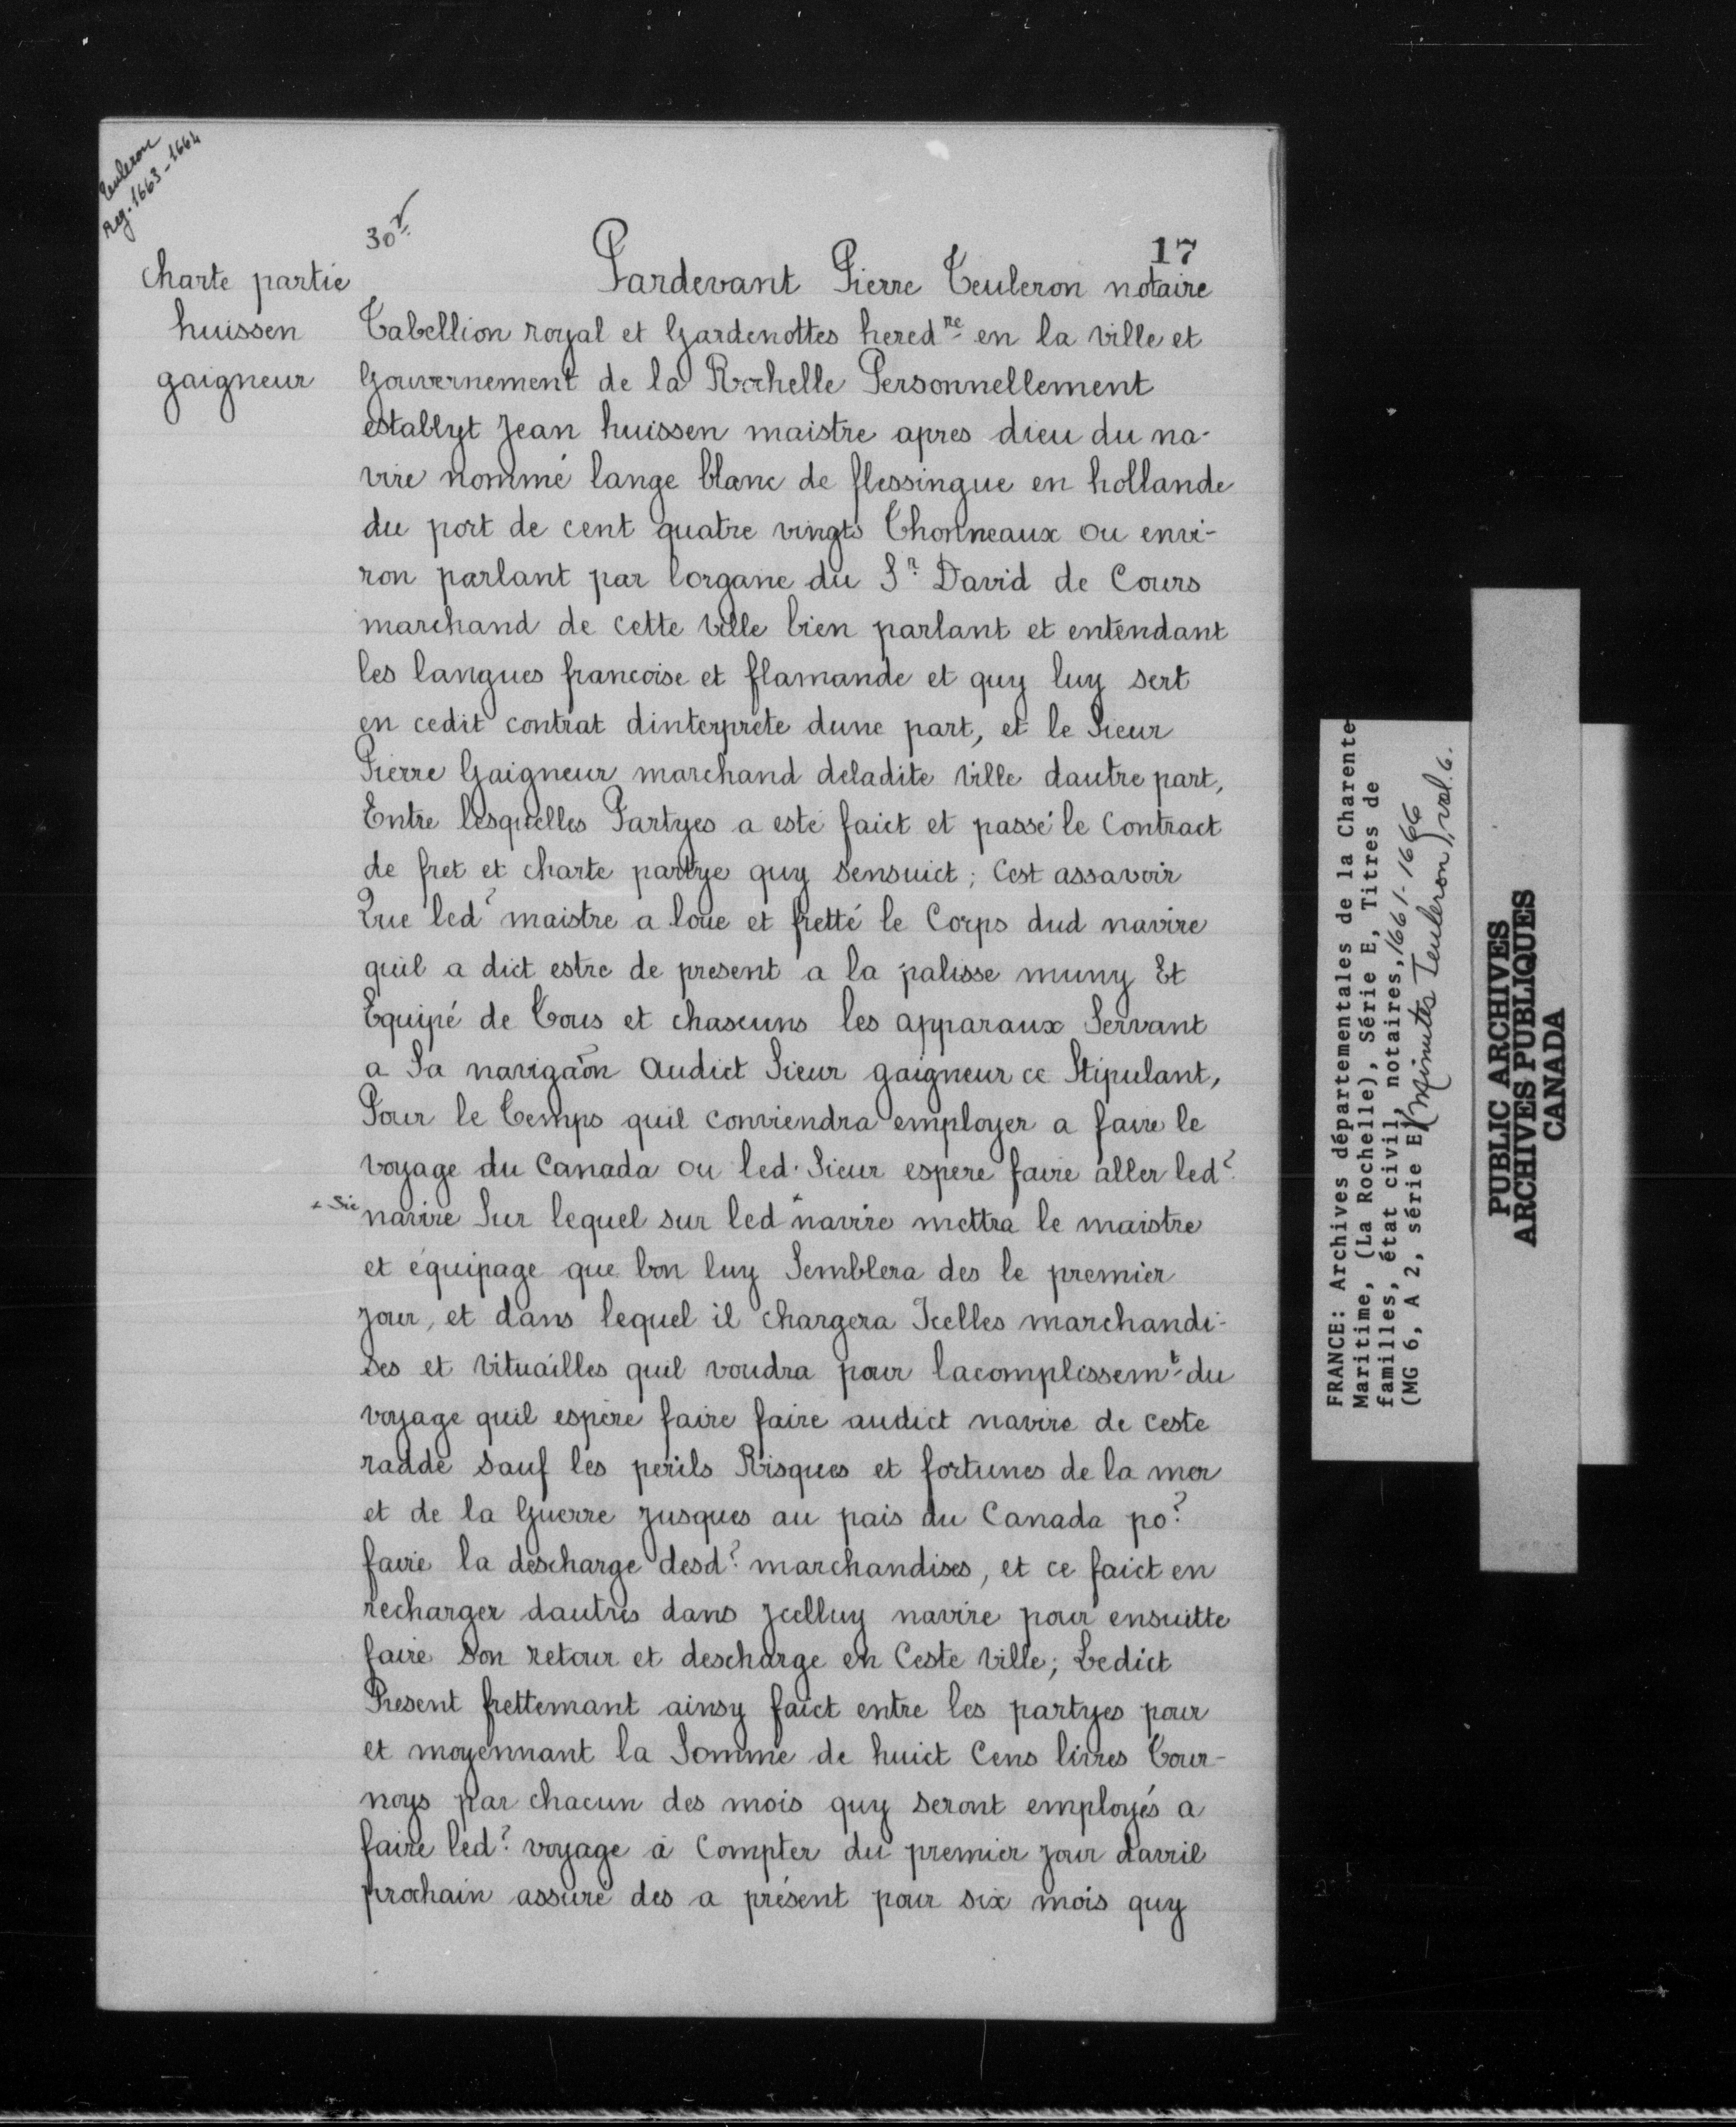 Teuleron
Reg. 1663-1664
30 r
17
charte partie
huissen
gaigneur
Pardevant Pierre Teuleron notaire
Tabellion royal et Gardenottes hered.re en la ville et
Gouvernement de la Rochelle Personnellement
establyt Jean huissen maistre apres dieu du na-
vire nommé lange blanc de flessingue en hollande
du port de cent quatre vingts Thonneaux ou envi-
ron parlant par lorgane du Sr David de Cours
marchand de cette ville bien parlant et entendant
les langues francoise et flamande et quy luy sert
en cedit contrat dinterprete dune part, et le Sieur
Pierre Gaigneur marchand deladite ville dautre part,
Entre lesquelles Partyes a esté faict et passé le Contract
de fret et charte partye quy sensuict ; Cest assavoir
Que led? maistre a loue et fretté le Corps dud navire
quil a dict estre de present a la palisse muny Et
Equipé de Tous et chascuns les apparaux Servant
a Sa navigaon Audict Sieur gaigneur ce Stipulant,
Pour le Temps quil conviendra employer a faire le
voyage du Canada ou led. Sieur espere faire aller led?
+ Sic
navire Sur lequel sur led + navire mettra le maistre
et équipage que bon luy Semblera des le premier
jour, et dans lequel il chargera Icelles marchandi-
ses et vituailles quil voudra pour lacomplissemt du
voyage quil espere faire faire audict navire de ceste
radde sauf les perils Risques et fortunes de la mer
et de la Guerre jusques au pais du Canada po?
faire la descharge desd? marchandises, et ce faict en
recharger dautres dans jcelluy navire pour ensuitte
faire son retour et descharge en Ceste ville ; Ledict
Present frettemant ainsy faict entre les partyes pour
et moyennant la Somme de huict Cens livres Tour-
noys par chacun des mois quy seront employés a
faire led? voyage à Compter du premier jour davril
prochain assuré des a présent pour six mois quy
FRANCE: Archives départementales de la Charente
Maritime, (La Rochelle), Série E, Titres de
familles, état civil, notaires, 1661-1666
(MG 6, A 2, série E) (Minutes Teuleron), vol. 6.
PUBLIC ARCHIVES
ARCHIVES PUBLIQUES
CANADA